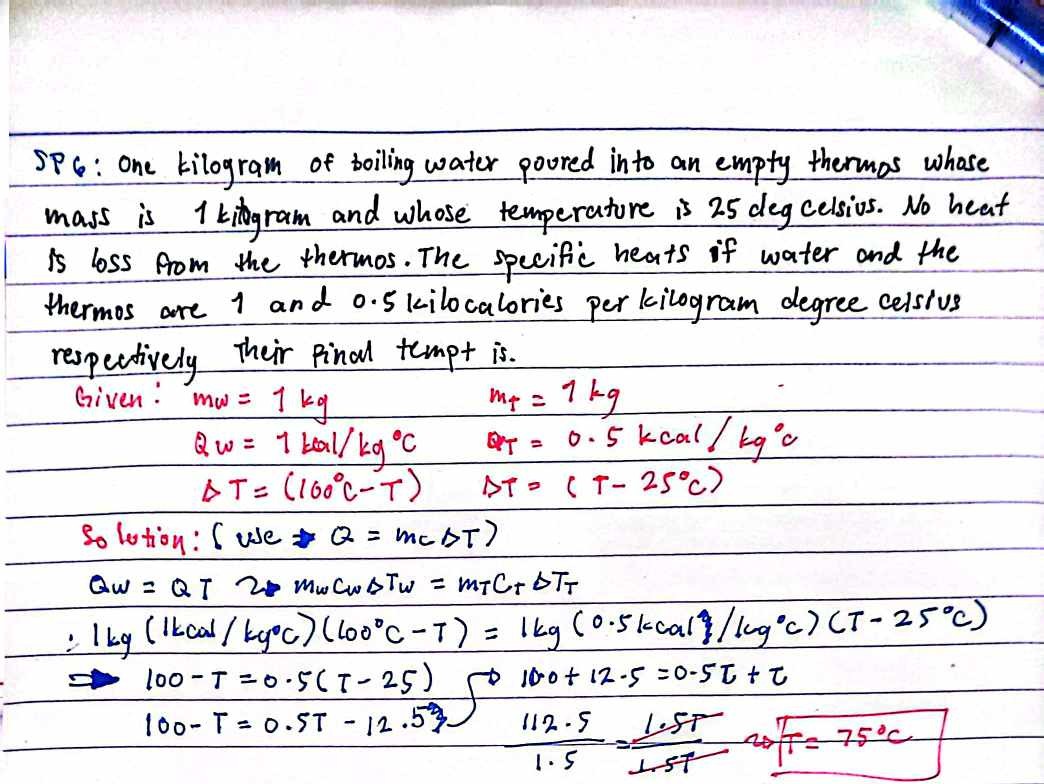 SP6: One kilogram of boiling water poured into an empty thermos whose
mass is 1 kilogram and whose temperature is 25 deg celsius. No heat
is loss from the thermos. The specific heats if water and the
thermos are 1 and 0.5 kilocalories per kilogram degree celsius
respectively Their Final tempt is.
Given: mw = 1 kg mT = 1 kg
Qw = 1 kcal/kg °C QT = 0.5 kcal/kg °C
ΔT = (100°C-T) ΔT = (T-25°C)
Solution: (use → Q = mcΔT)
Qw = QT → mwCwΔTw = mTCTΔTT
: 1kg (1kcal/kg°C)(100°C-T) = 1kg (0.5kcal/kg°C)(T-25°C)
⇒ 100-T = 0.5(T-25) → 100+12.5 = 0.5T+T
100-T = 0.5T - 12.5
112.5/1.5 = 1.5T/1.5T → T = 75°C